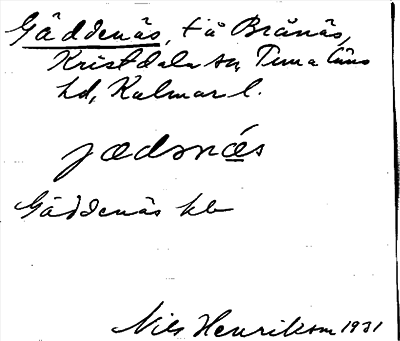 Gäddenäs, t å Brånäs,
Kristdala sn, Tuna läns
hd, Kalmar l.
jædnǽs
Gäddenäs kb
Nils Henrikson 1931